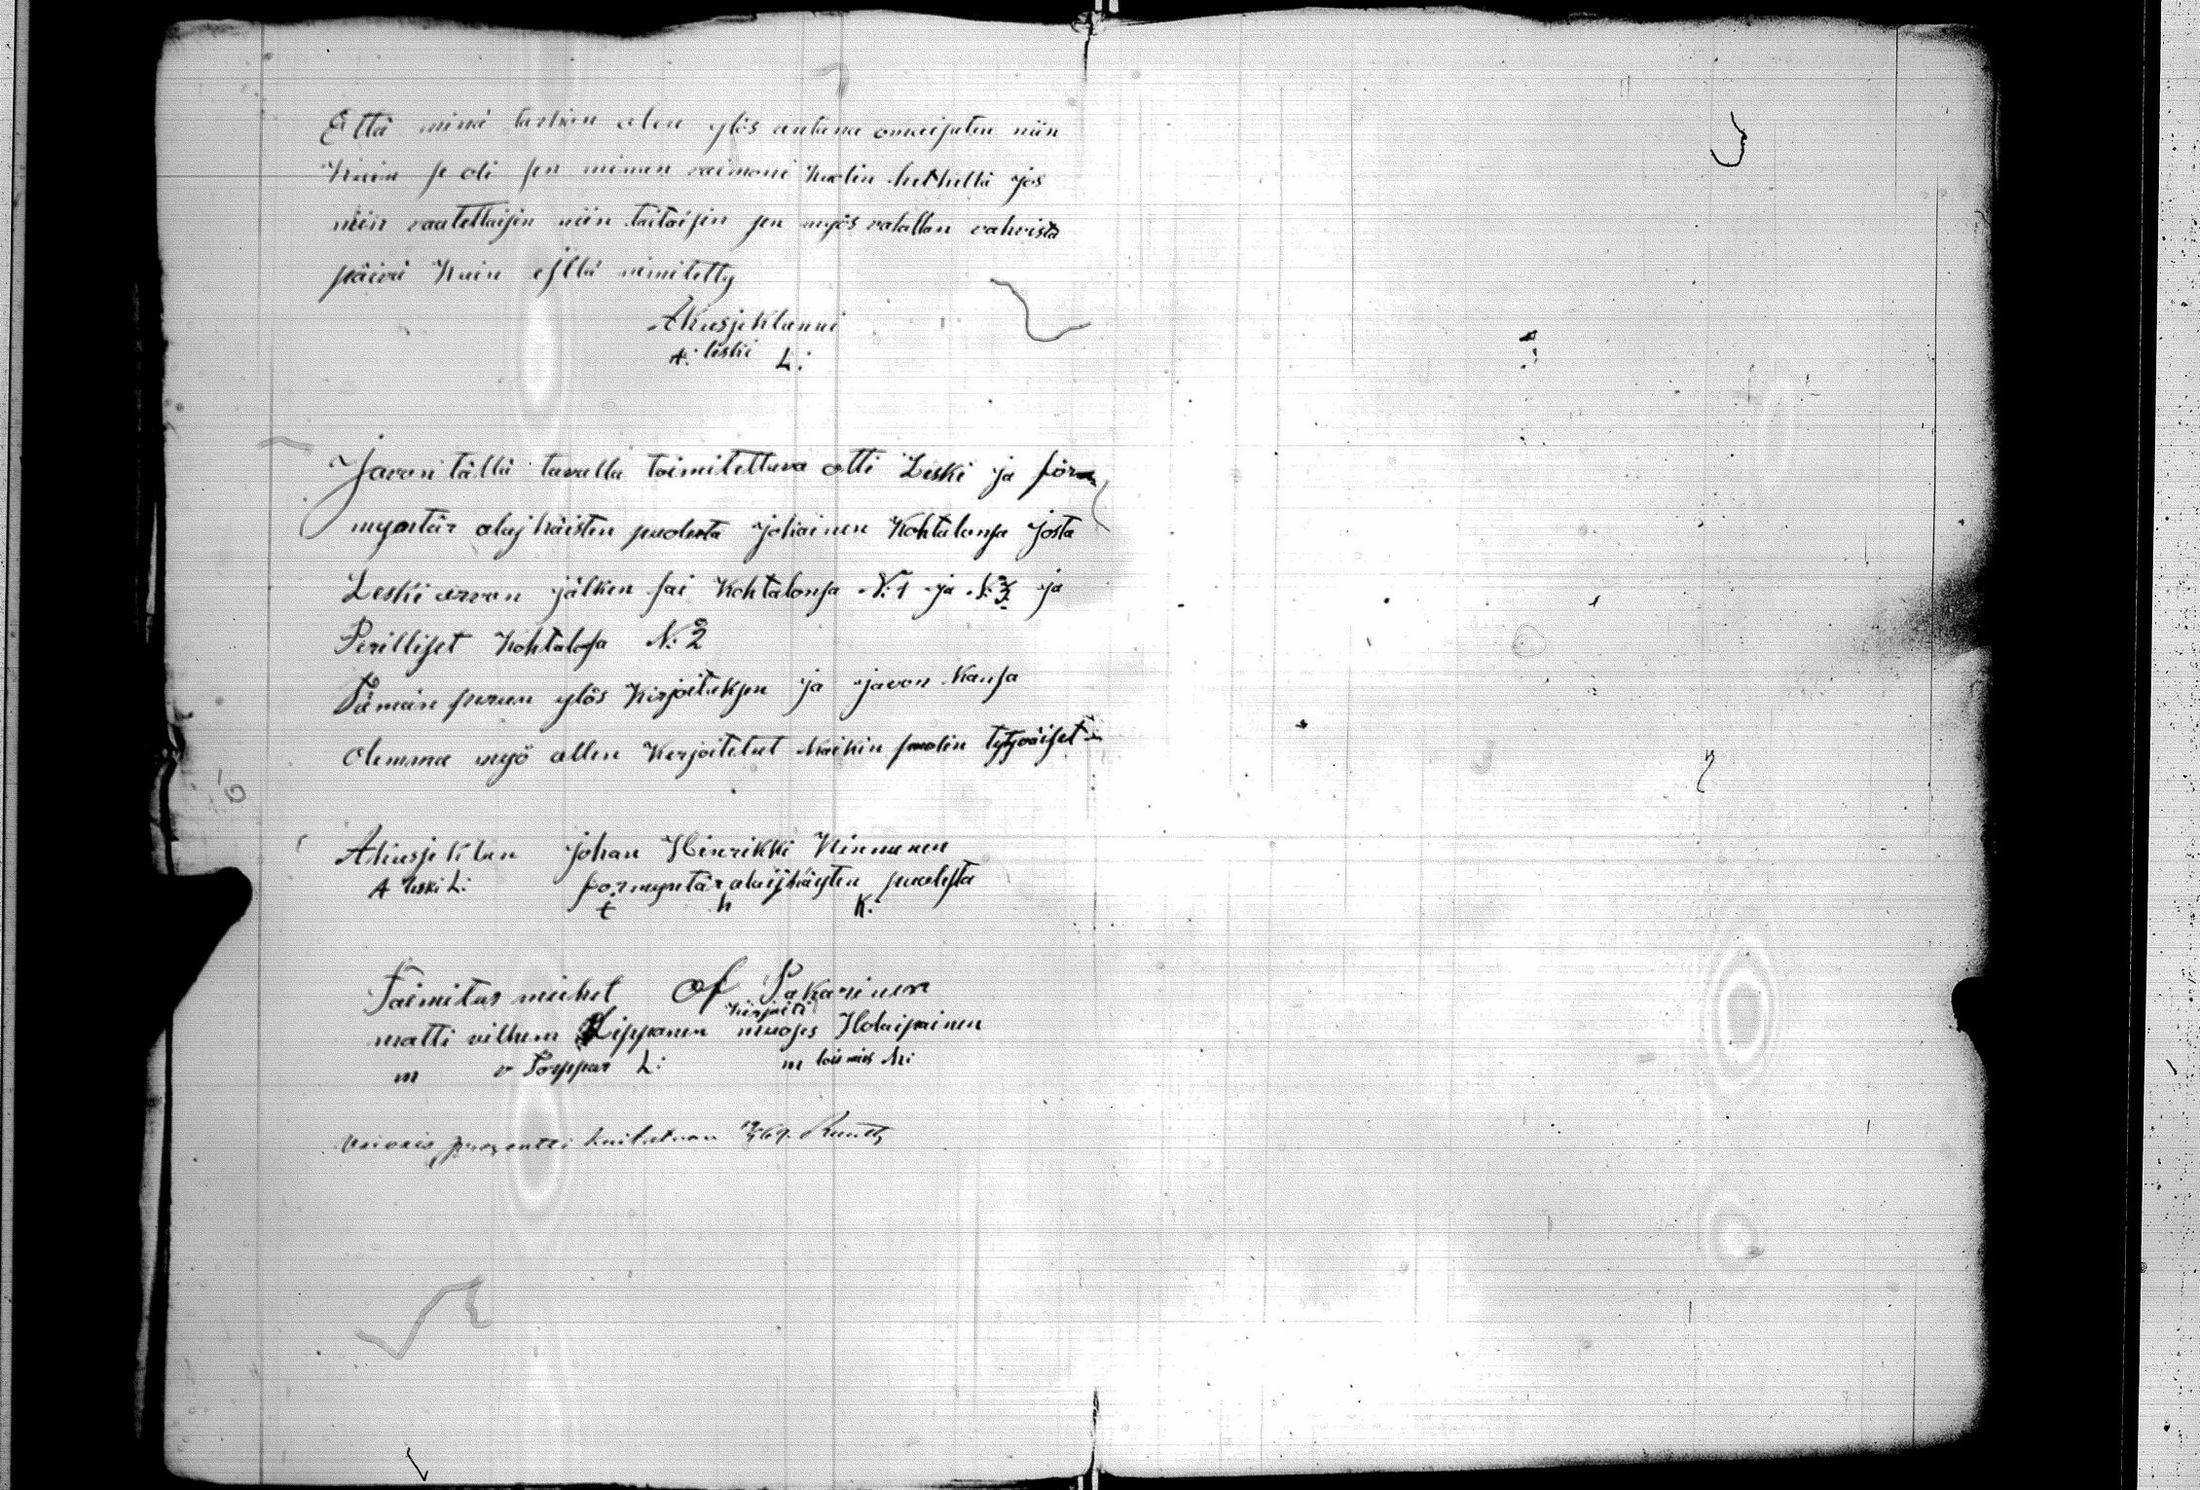 Että minä tarkan olen ylös antana omaijsuten niin
Kuin se oli sen minun vaimoni Kuolin hetkellä jos
niin vaatettaisin niin taitaisin sen myös valallan vahvista
päivä Kuin essllä nimitetty
Akusjeklanni
A: leski L:
Javon tällä tavalla toimitettuva otti Leski ja för
myntär alaj käisten puolesta johainen Kohtalonsa josta
Leski arvan jälken sai Kohtalonsa N:1 ja N:3 ja
Perilliset Kohtalosa N: 2
Tämän perun ylös Kirjoituksen ja javon Kansa
Olemma myö allen Kirjoitetut Kaikin puolin tytyväiset
Akusje Klan Johan Hinrikki Kinnunen
A leski L: förmyntär alaijkäysten puolesta
i h K:
Toimitus miehet Of Pakarinen
Kirjoiti
matti vilhem Lipponen muojes Holaipainen
m v Torppar L: m lois mies h:
vaivais prosentti kuitataan 69.